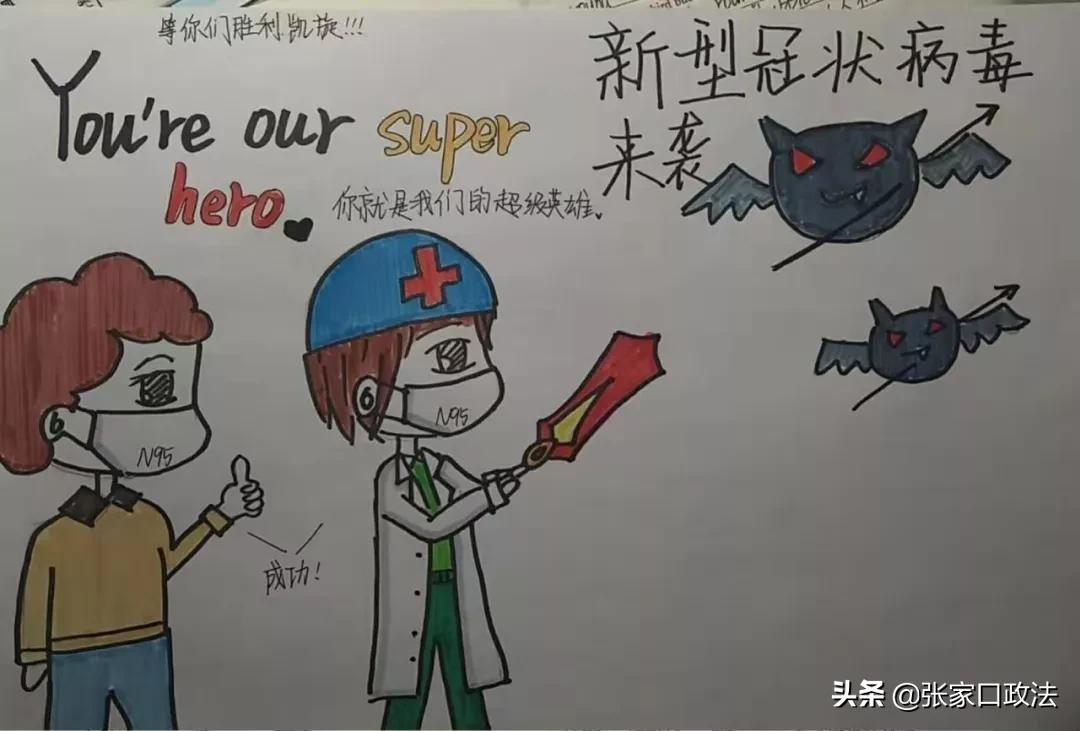 等你们胜利凯旋!!!
You're our super
hero
你就是我们的超级英雄。
新型冠状病毒
来袭
N95
N95
成功!
头条 @张家口政法